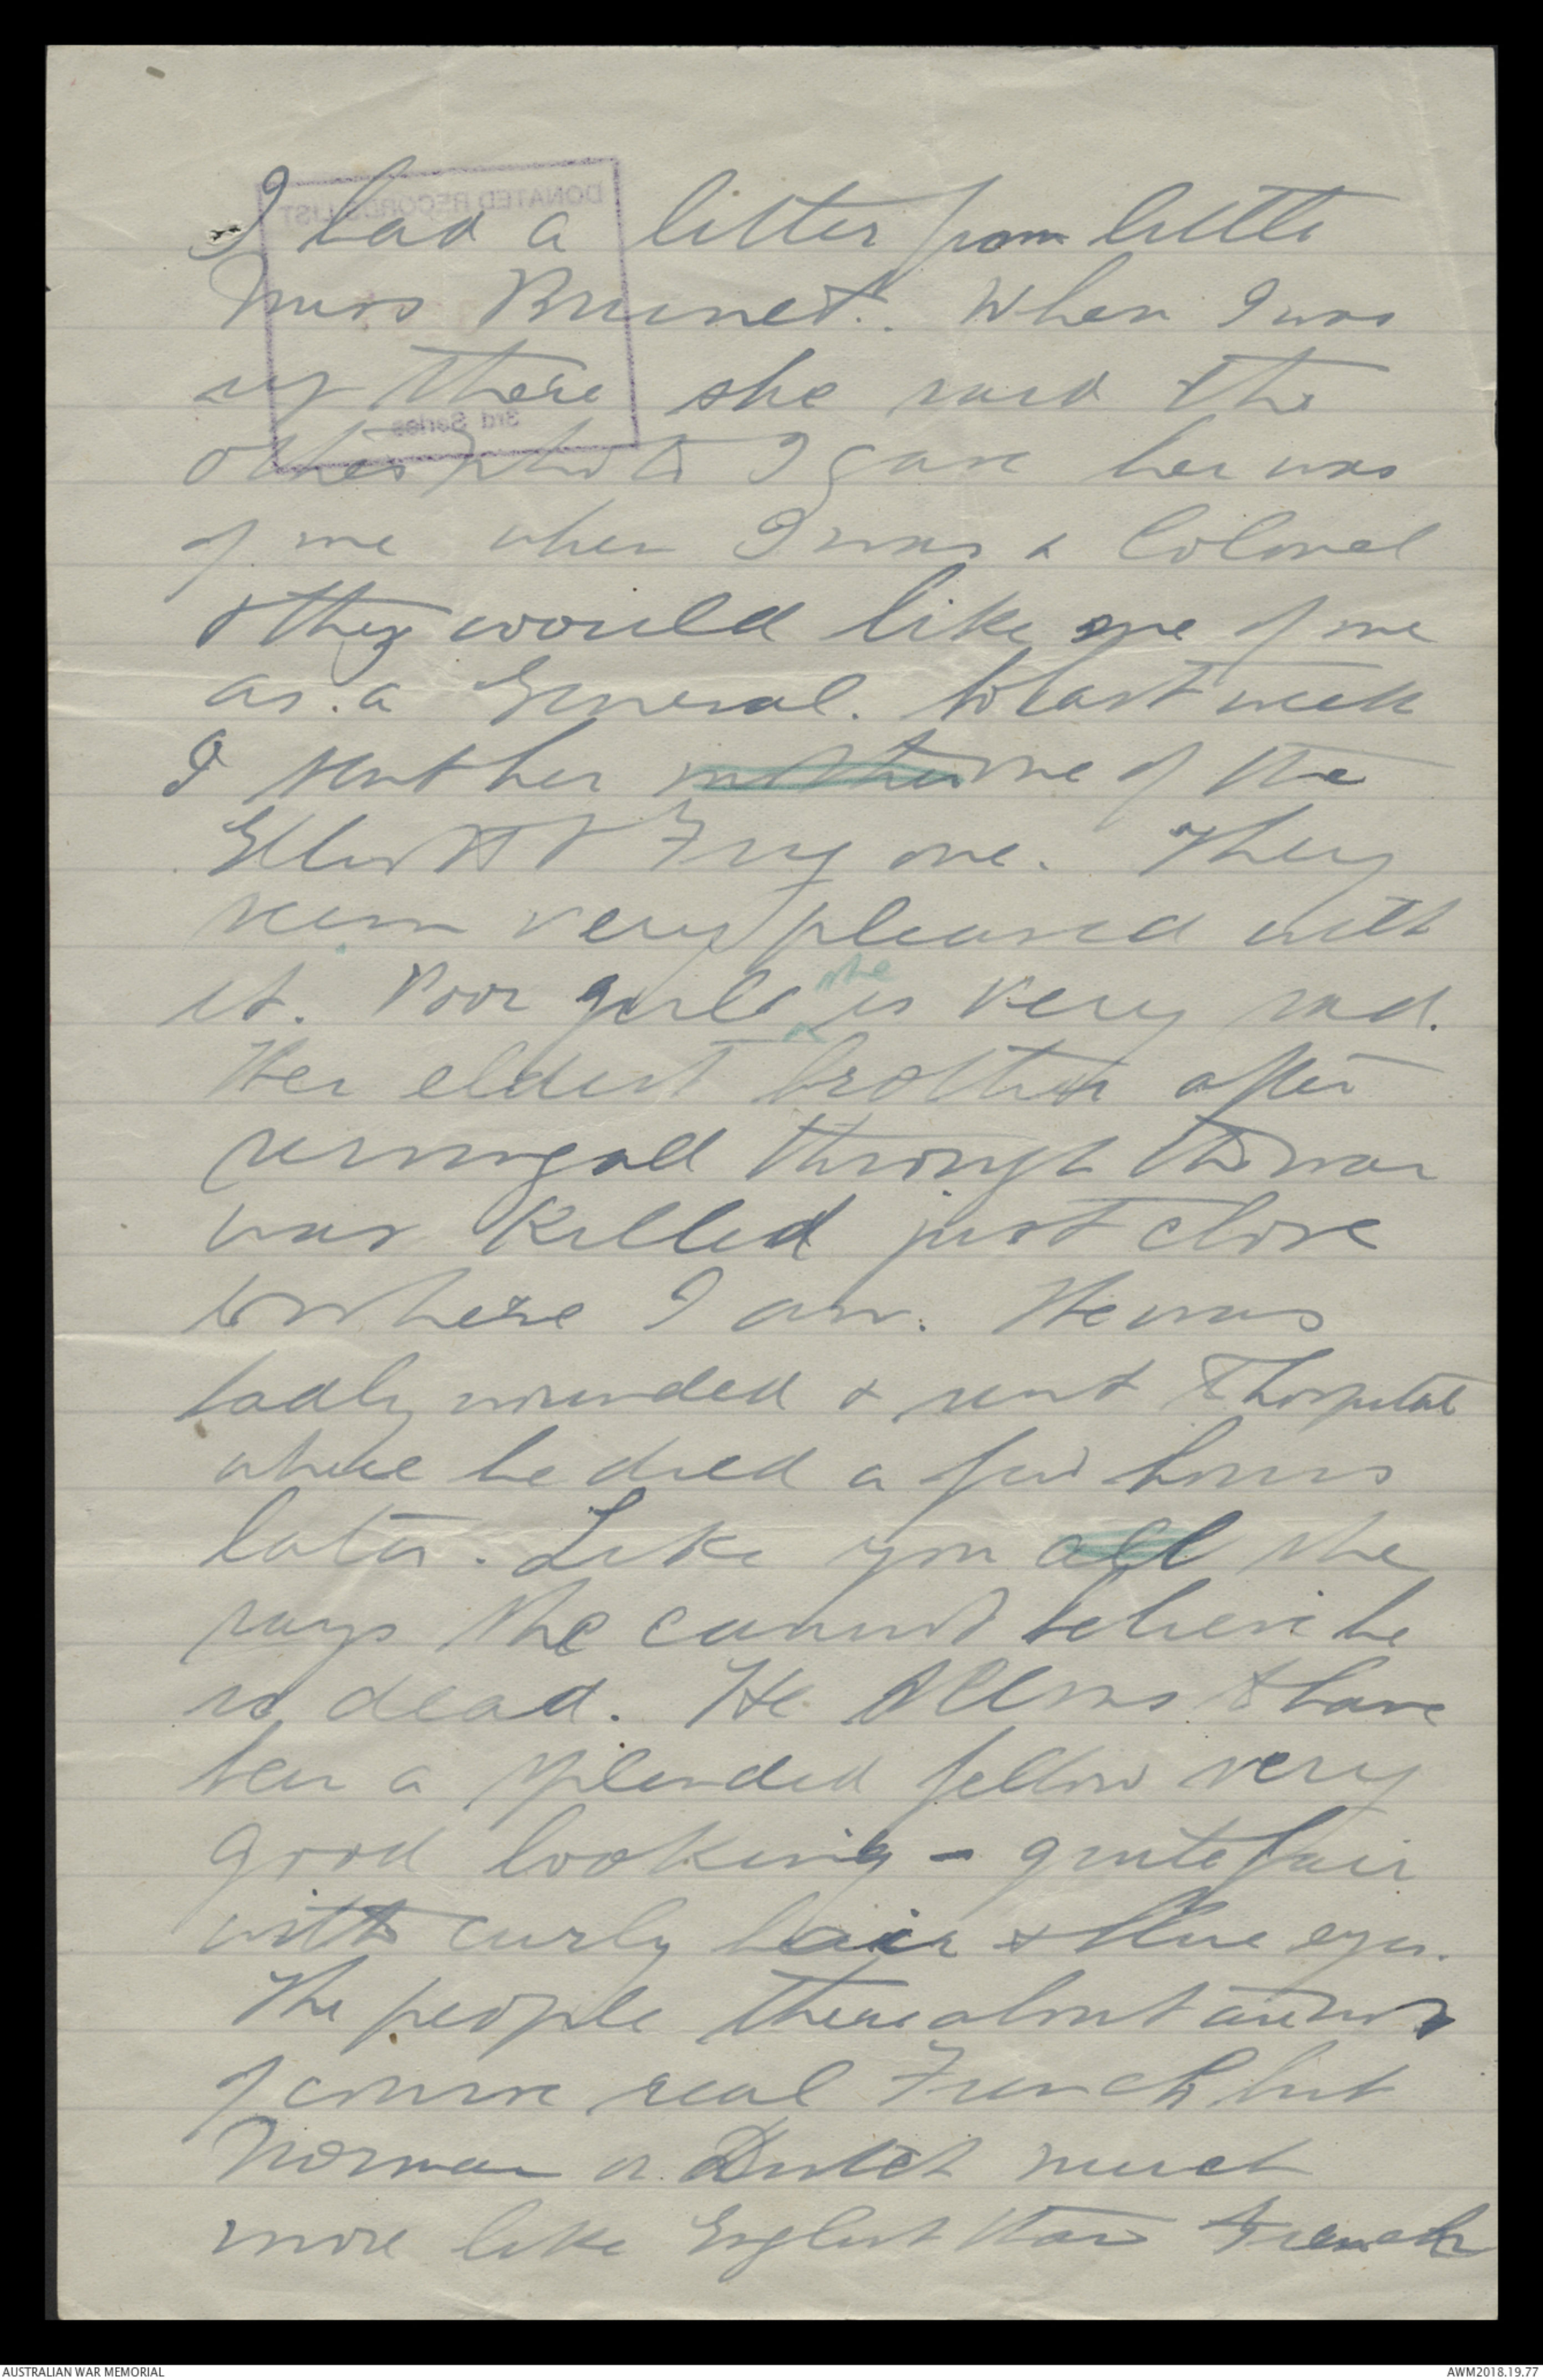 DONATED RECORDS LIST
3rd Series
I had a letter from little
Miss Brunet. When I was
up there she said the
other photo I gave her was
of me when I was a Colonel
& they would like one of me
as a General. So last week
I sent her another one of the
Elliott & Fry one. They
seem very pleased with
it. Poor girls she is very sad.
Her eldest brother after
serving all through the war
was killed just close
to where I am. He was
badly wounded & sent to hospital
where he died a few hours
later. Like you all she
says she cannot believe he
is dead. He seems to have
been a splendid fellow very
good looking - quite fair
with curly hair & blue eyes.
The people thereabout are not
of course real French but
Norman or Dutch much
more like English than French
AUSTRALIAN WAR MEMORIAL
AWM2018.19.77